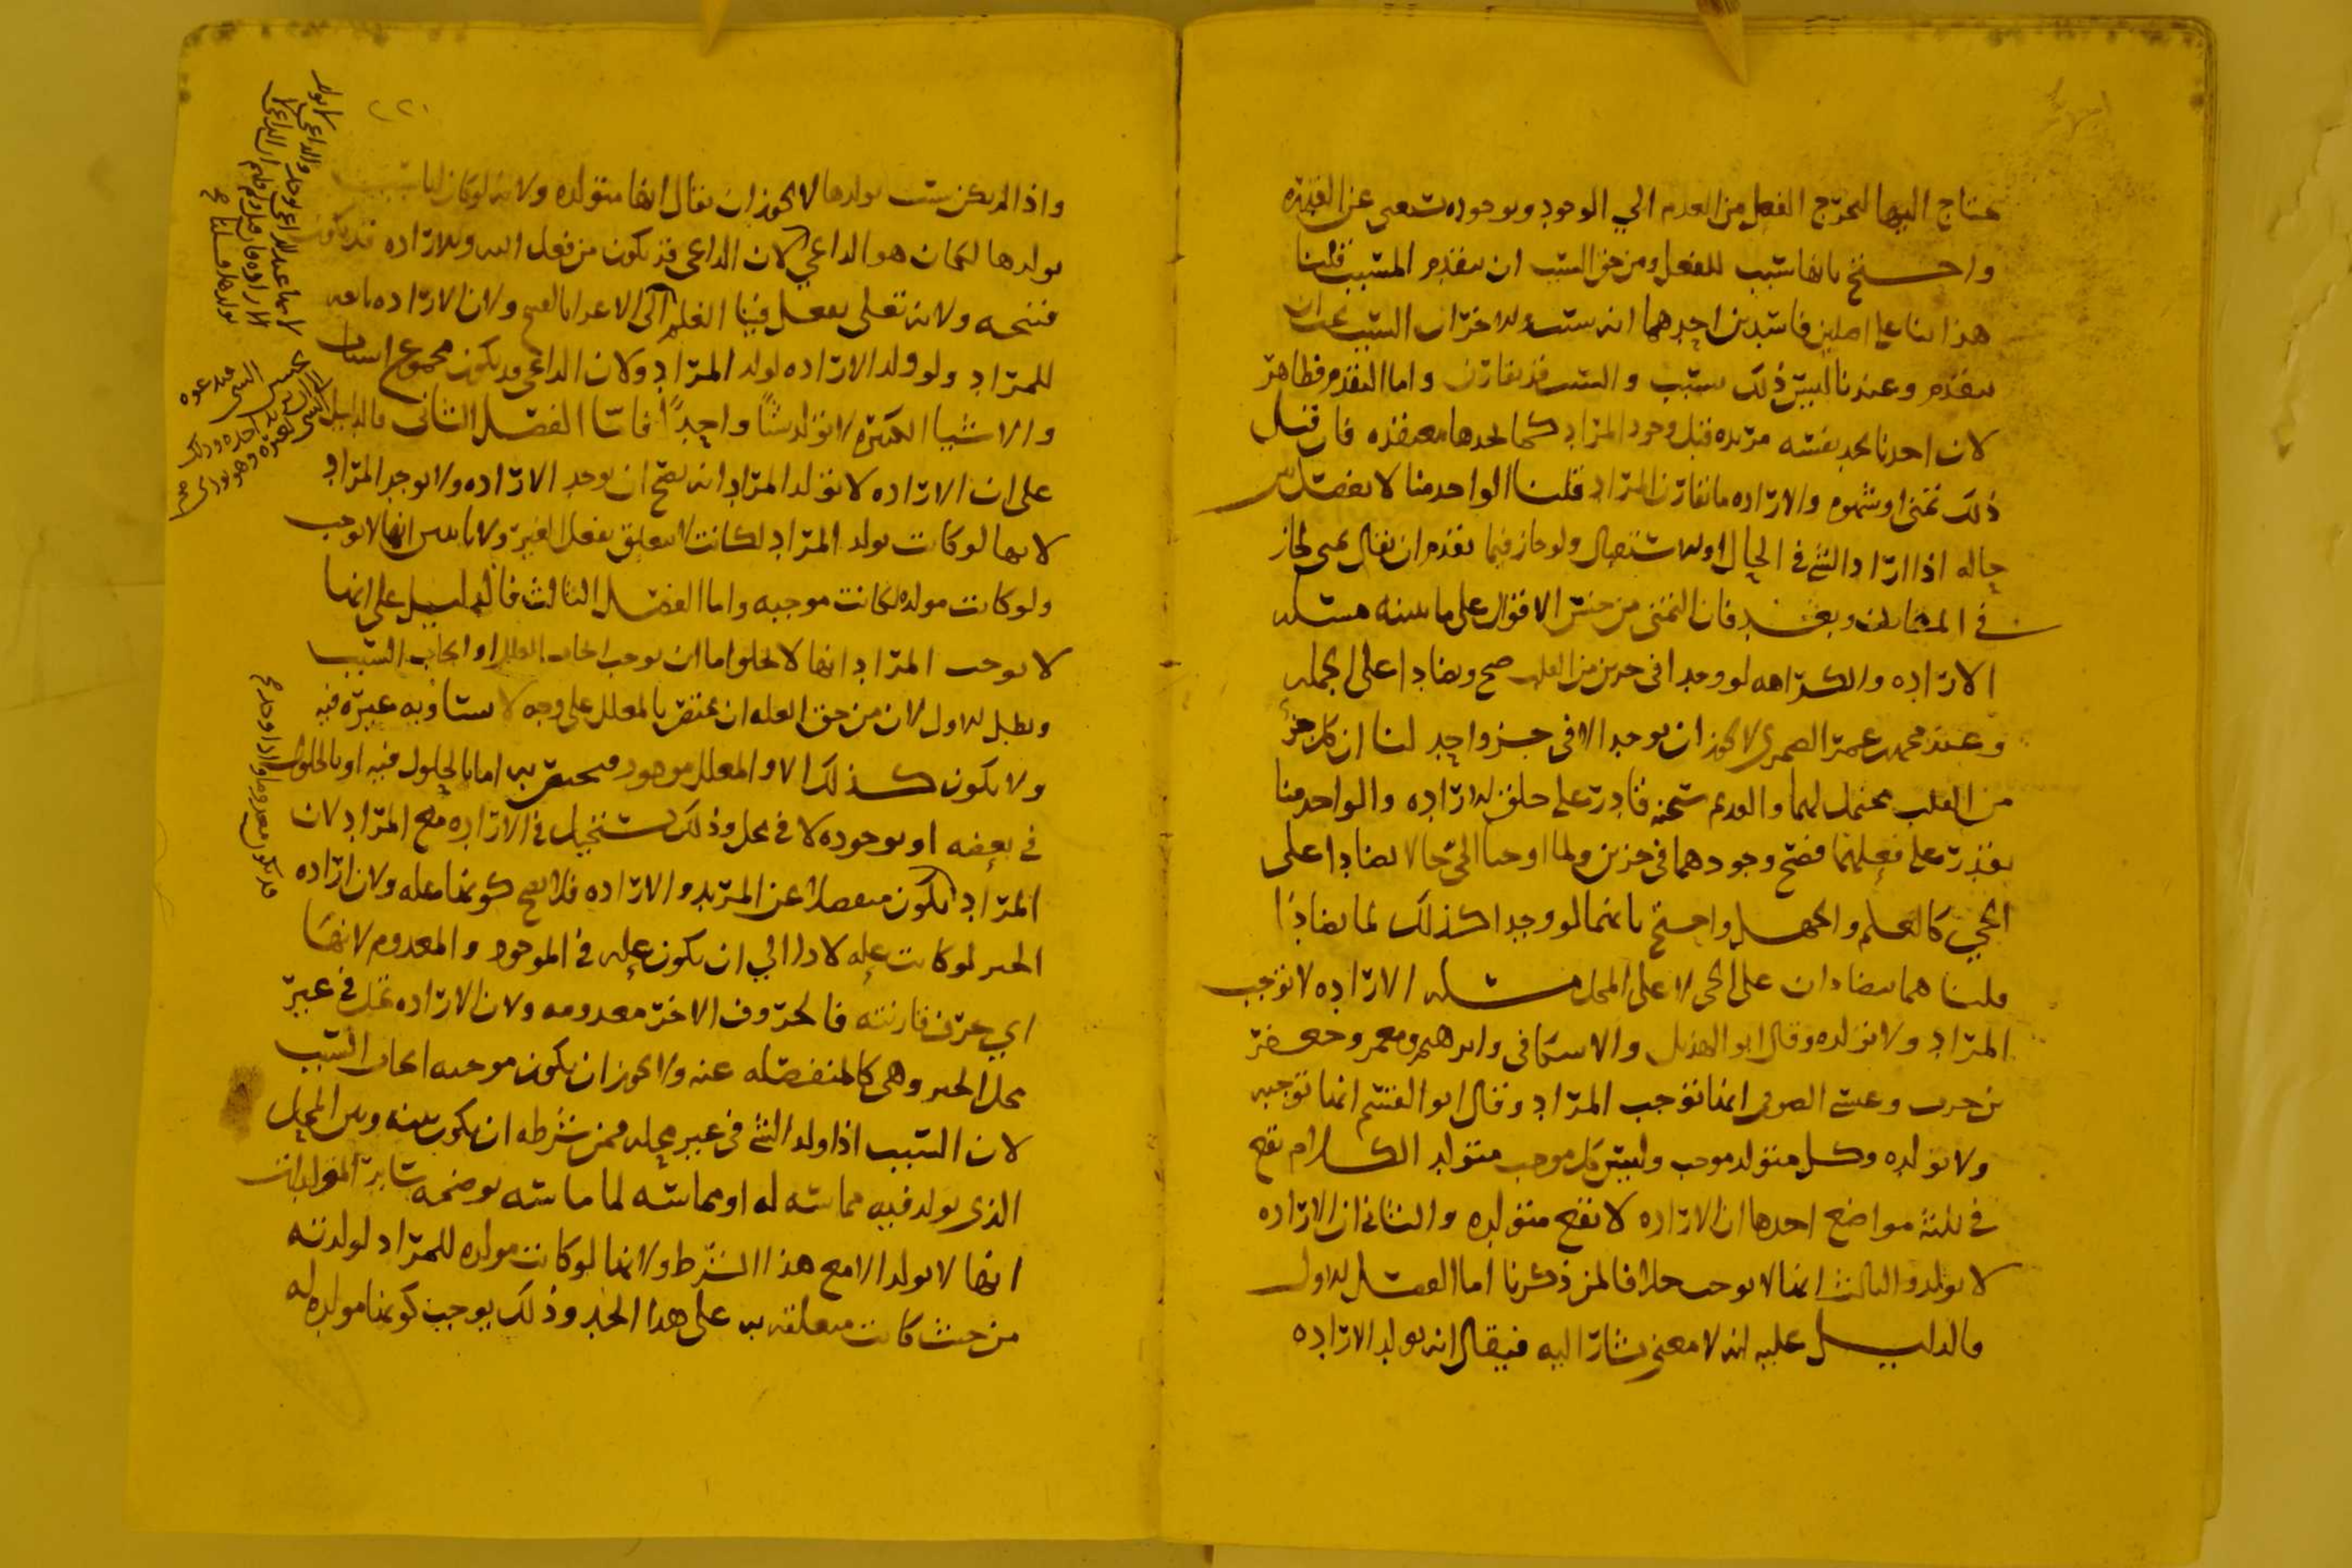 يحتاج اليها لتخرج الفعل من العدم الي الوجود وبوجوده يستغني عن القدرة
واحتج بانها سبب للفعل ومن حق السبب ان يتقدم المسبب قلنا
هذا بنا على اصلين فاسدين احدهما انه سبب والاخر ان السبب يجب ان
يتقدم وعندنا ليس ذلك بسبب والسبب قد يقارن واما التقدم فظاهر
لان احدنا يجد نفسه مريده قبل وجود المراد كما يجدها معتقده فان قيل
ذلك تمني او شهوه والاراده ما يقارن المراد قلنا الواحد منا لا يفصل بين
حاله اذا اراد الشي في الحال او الاستقبال ولو جاز فيما تقدم ان يقال تمني لجاز
في المقارن وبعد فان التمني من جنس الاقوال على ما نبينه مسله
الاراده والكراهه لو وجدا في جزين من القلب صح وتضادا على الجمله
وعند محمد بن عمر الصيمري لا يجوز ان يوجد الا في جزو واحد لنا ان كل جزء
من القلب محتمل لهما والقديم سبحنه قادر على خلق الاراده والواحد منا
يقدر على فعلهما فصح وجودهما في جزين ولما اوجبا للحي حالا تضادا على
الحي كالعلم والجهل واحتج بانهما لو وجدا كذلك لما تضادا
قلنا هما يتضادان على الحي لا على المحل مسله الاراده لا توجب
المراد ولا تولده وقال ابو الهذيل والاسكافي وابرهيم ومعمر وجعفر
بن حرب وعيسى الصوفي انها توجب المراد وقال ابو القسم انها توجبه
ولا تولده وكل متولد موجب وليس كل موجب متولد الكلام يقع
في ثلثة مواضع احدها ان الاراده لا تقع متولده والثاني ان الاراده
لا تولد والثالث انها لا توجب خلافا لمن ذكرنا اما الفصل الاول
فالدليل عليه انه لا معنى يشار اليه فيقال انه يولد الاراده
واذا لم يكن سبب يولدها لا يجوز ان يقال انها متولده ولانه لو كان لها سبب
يولدها لكان هو الداعي لان الداعي قد يكون من فعل الله والاراده قد تكون
قبيحه ولانه تعلى يفعل فينا العلم الداعي الاغرا بالقبيح ولان الاراده تابعه
للمراد ولو ولد الاراده لولد المراد ولان الداعي قد يكون مجموع اشيا
والاشيا الكثيره لا تولد شيا واحدا فاما الفصل الثاني فالدليل
على ان الاراده لا تولد المراد انه يصح ان توجد الاراده ولا يوجد المراد
لانها لو كانت تولد المراد لكانت لا تتعلق بفعل الغير ولانا نبين انها لا توجب
ولو كانت مولده لكانت موجبه واما الفصل الثالث فالدليل على انها
لا توجب المراد انها لا تخلو اما ان توجب ايجاب العلل او ايجاب السبب
وبطل الاول لان من حق العله ان تختص بالمعلل على وجه لا يساويه غيره فيه
ولا يكون كذلك الا والمعلل موجود فتختص به اما بالحلول فيه او بالحلول
في بعضه او بوجوده لا في محل وذلك يستحيل في الاراده مع المراد لان
المراد يكون منفصلا عن المريد والاراده فلا يصح كونها عله ولان اراده
الخبر لو كانت عله لادا الي ان تكون عله في الموجود والمعدوم لانها
اي حرف قارنته فالحروف الاخر معدومه ولان الاراده تحل في غير
محل الخبر وهي كالمنفصله عنه ولا يجوز ان يكون موجبه ايجاب السبب
لان السبب اذا ولد الشي في غير محله فمن شرطه ان يكون بينه وبين المحل
الذي يولد فيه مماسه له او مماسه لما ماسه يوضحه ساير المولدات
انها لا تولد الا مع هذا الشرط ولانها لو كانت مولده للمراد لولدته
من حيث كانت متعلقه به على هذا الحد وذلك يوجب كونها مولده له